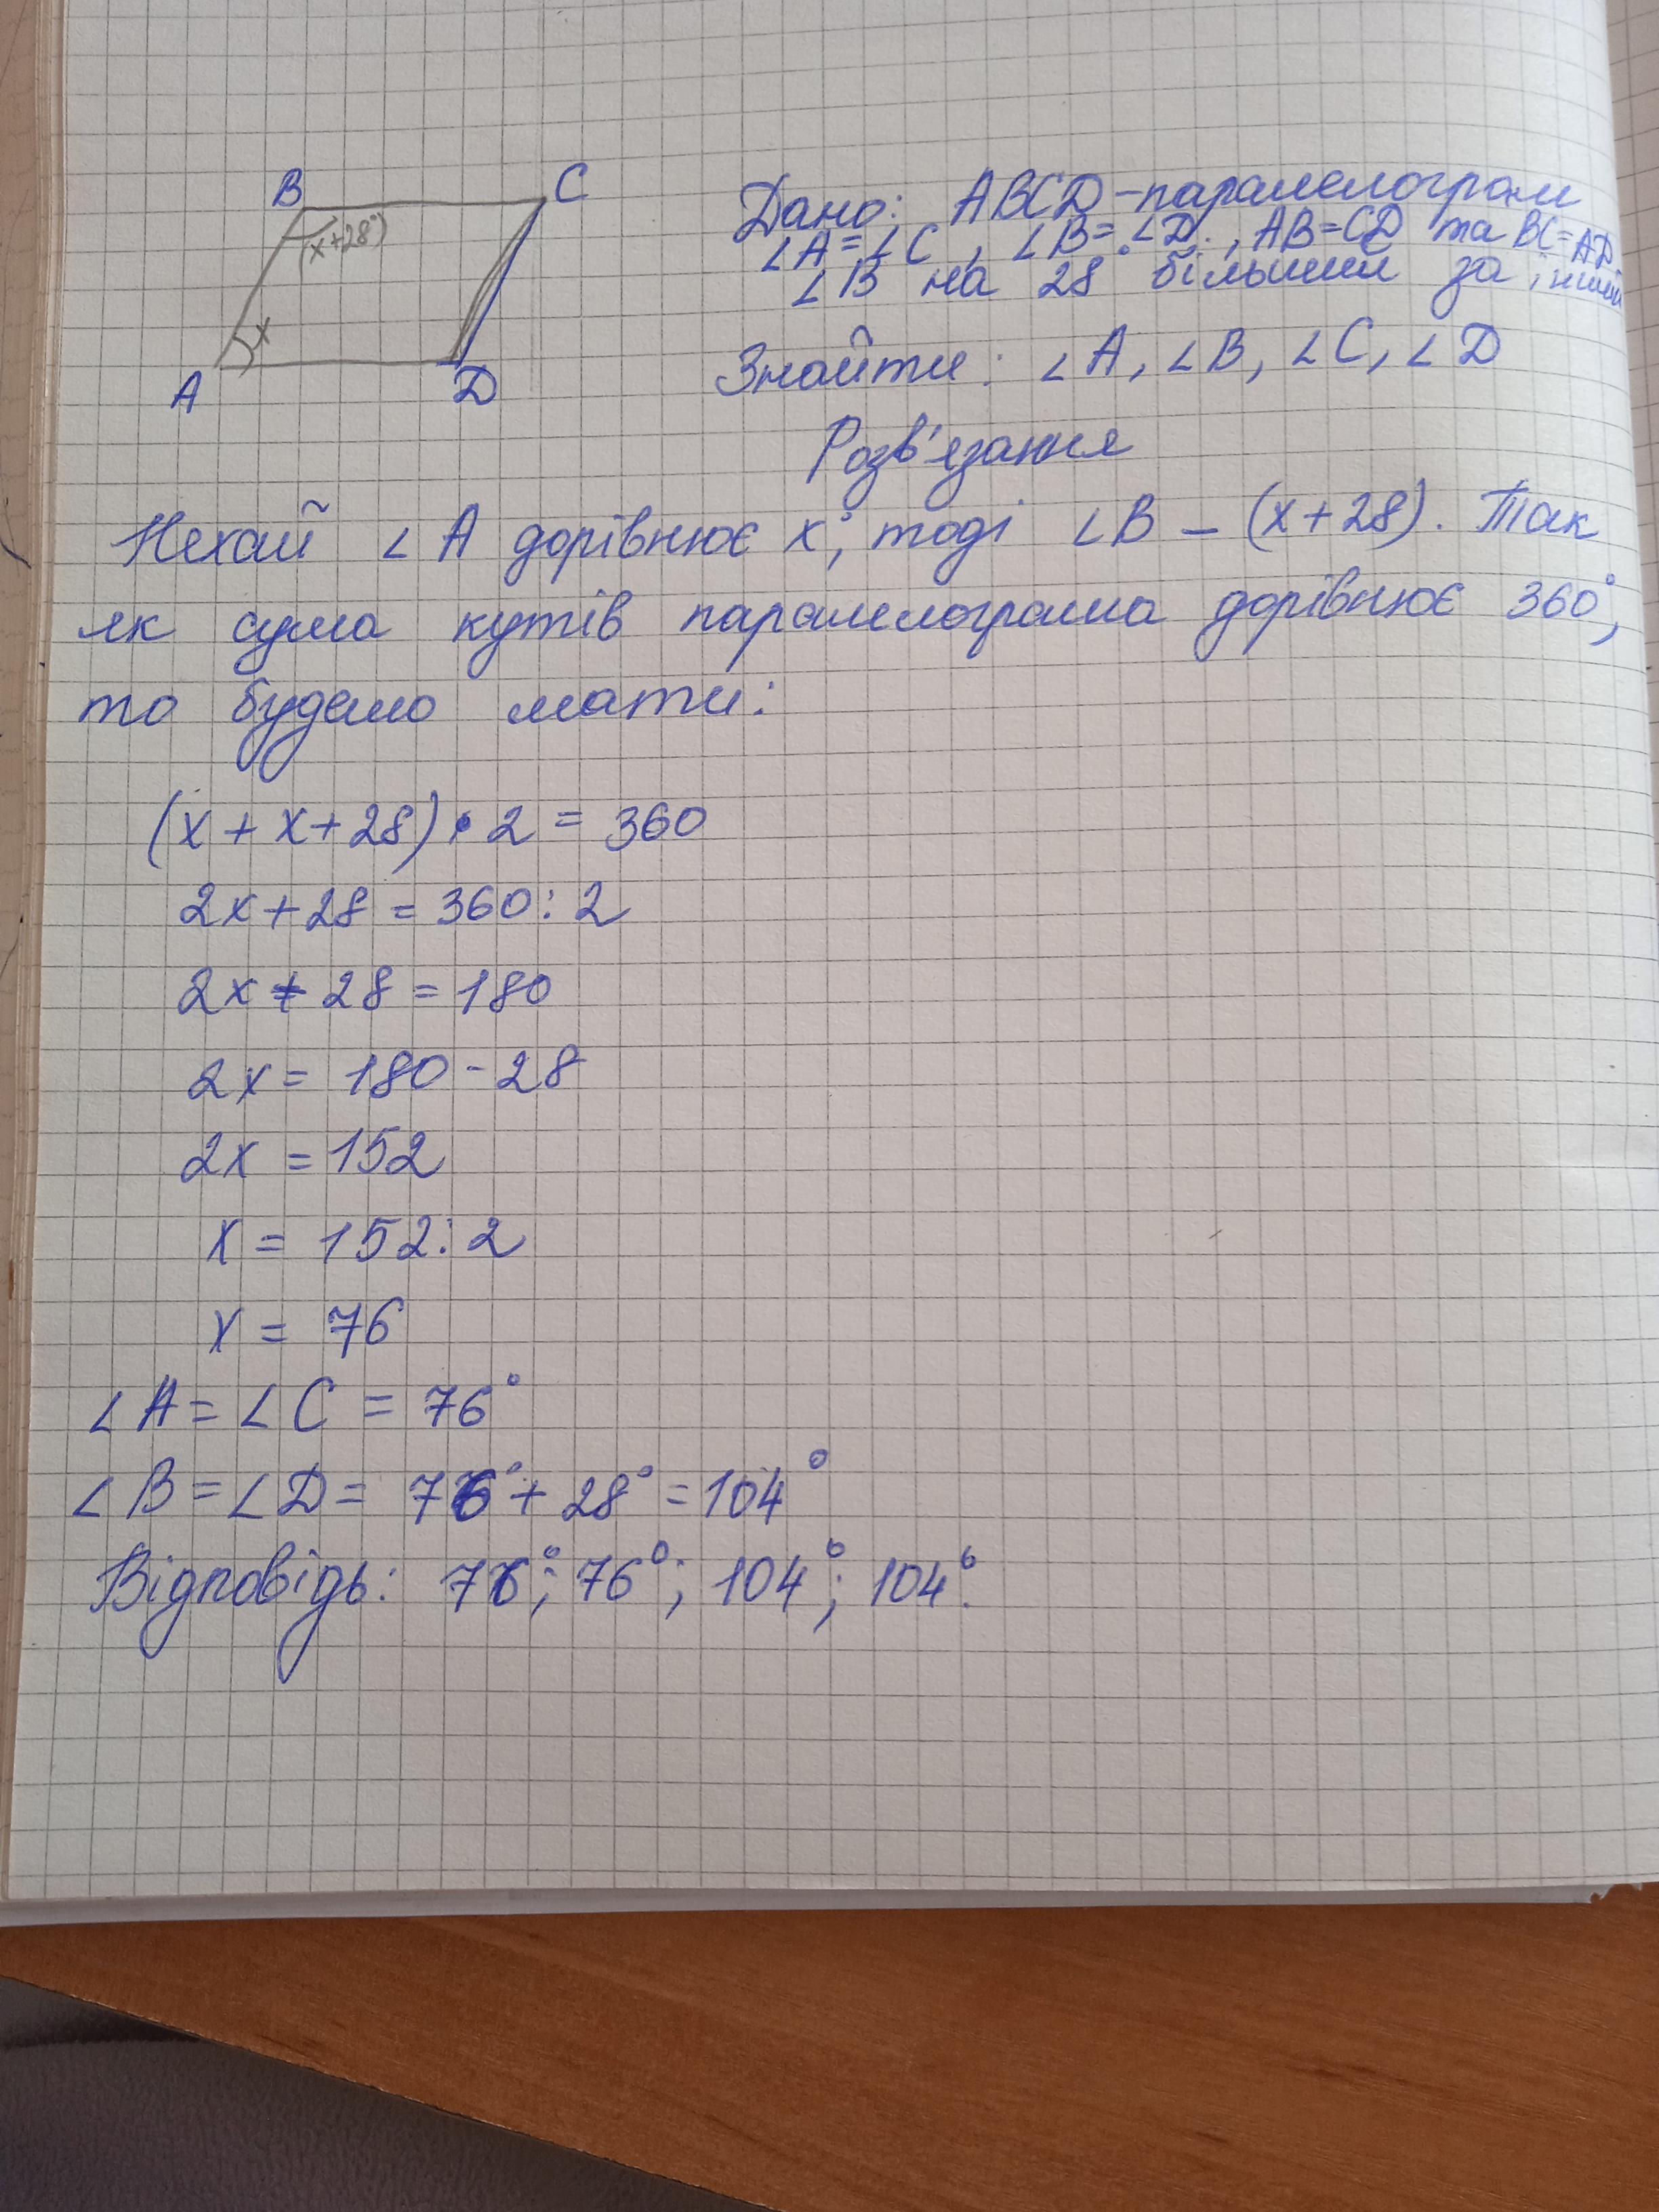 B
C
(x+28°)
x
A
D
Дано: ABCD - паралелограм
∠A=∠C, ∠B=∠D, AB=CD та BC=AD
∠B на 28° більший за інший
Знайти: ∠A, ∠B, ∠C, ∠D
Розв'язання
Нехай ∠A дорівнює x°, тоді ∠B – (x+28). Так
як сума кутів паралелограма дорівнює 360°,
то будемо мати:
(x + x + 28) • 2 = 360
2x + 28 = 360 : 2
2x + 28 = 180
2x = 180 - 28
2x = 152
x = 152 : 2
x = 76
∠A = ∠C = 76°
∠B = ∠D = 76° + 28° = 104°
Відповідь: 76°; 76°; 104°; 104°.